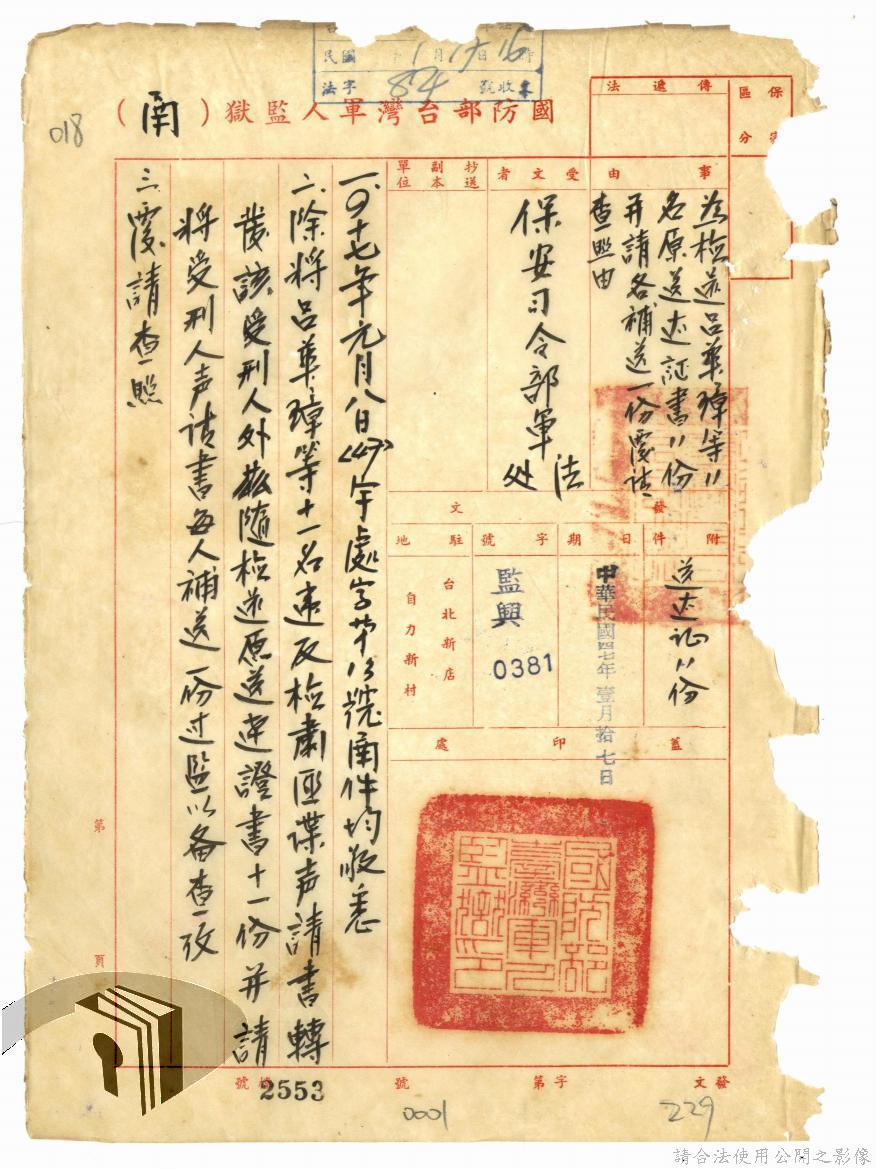 民國 年1月17日16時
法字 84 號收
018
國防部台灣軍人監獄(函)
保 區分
傳遞法
事由
為檢送呂華璋等11
名原送达証書11份
并請各補送一份覆請
查照由
受文者
保安司令部軍法处
抄送副本單位
發文
附件
送达証11份
日期
中華民國四七年壹月拾七日
字號
監興
0381
駐地
台北新店
自力新村
蓋印處
國防部臺灣軍人監獄印
一、四十七年元月八日(47)字處字第13號函件均敬悉
二、除將呂華璋等十一名違反檢肅匪諜声請書轉
發該受刑人外茲隨檢送原送達證書十一份并請
將受刑人声請書每人補送一份过監以备查攷
三、覆請查照
第 頁
發文 字第 號
檔號
2553
0001
229
請合法使用公開之影像